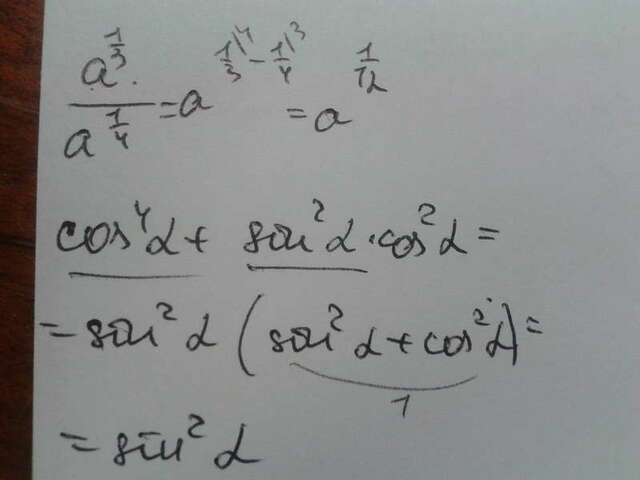 a^(1/3) / a^(1/4) = a^(1/3 |4 - 1/4 |3) = a^(1/12)
cos⁴α + sin²α · cos²α =
= sin²α (sin²α + cos²α) =
1
= sin²α